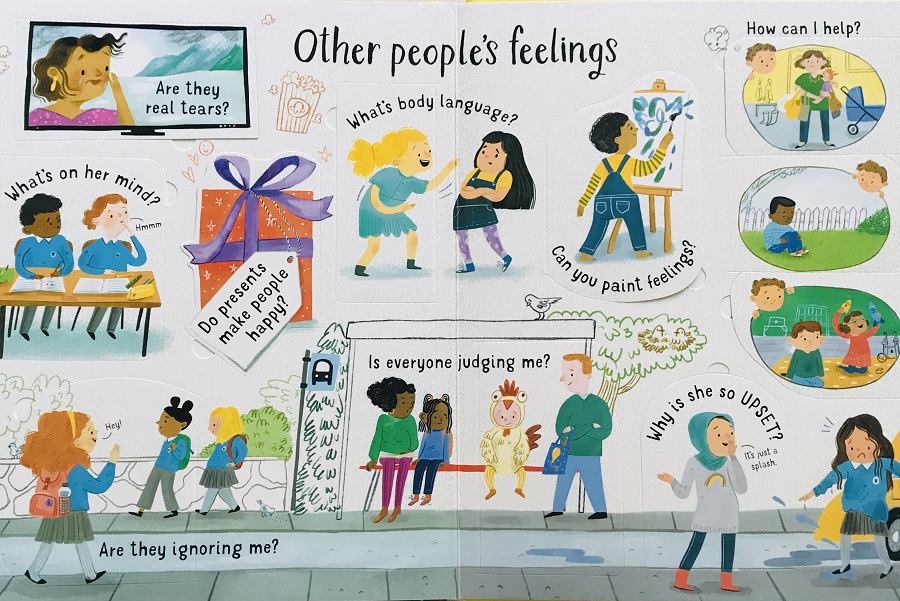 Other people's feelings
Are they
real tears?
What's on her mind?
Hmmm
Do presents
make people
happy?
What's body language?
Can you paint feelings?
How can I help?
Is everyone judging me?
Hey!
Are they ignoring me?
Why is she so UPSET?
It's just a
splash.